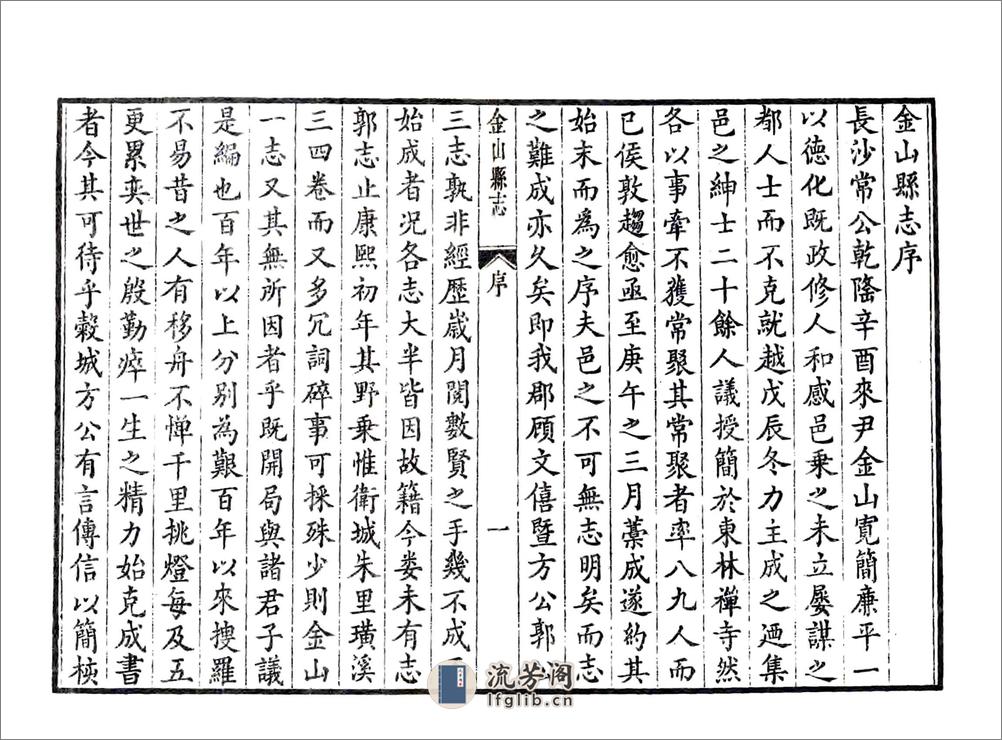 金山縣志序
長沙常公乾隆辛酉來尹金山寛簡廉平一
以德化既政修人和感邑乗之未立屢謀之
都人士而不克就越戊辰冬力主成之迺集
邑之紳士二十餘人議授簡於東林禪寺然
各以事牽不獲常聚其常聚者率八九人而
已侯敦趨愈亟至庚午之三月藁成遂約其
始末而為之序夫邑之不可無志明矣而志
之難成亦久矣即我郡顧文僖暨方公郭公
金山縣志
序
一
三志孰非經歴歳月閱數賢之手幾不成而
始成者況各志大半皆因故籍今婁未有志
郭志止康熙初年其野乗惟衛城朱里璜溪
三四卷而又多冗詞碎事可採殊少則金山
一志又其無所因者乎既開局與諸君子議
是編也百年以上分别為艱百年以來搜羅
不易昔之人有移舟不憚千里挑燈每及五
更累奕世之殷勤瘁一生之精力始克成書
者今其可待乎穀城方公有言傳信以簡核
流芳阁
lfglib.cn